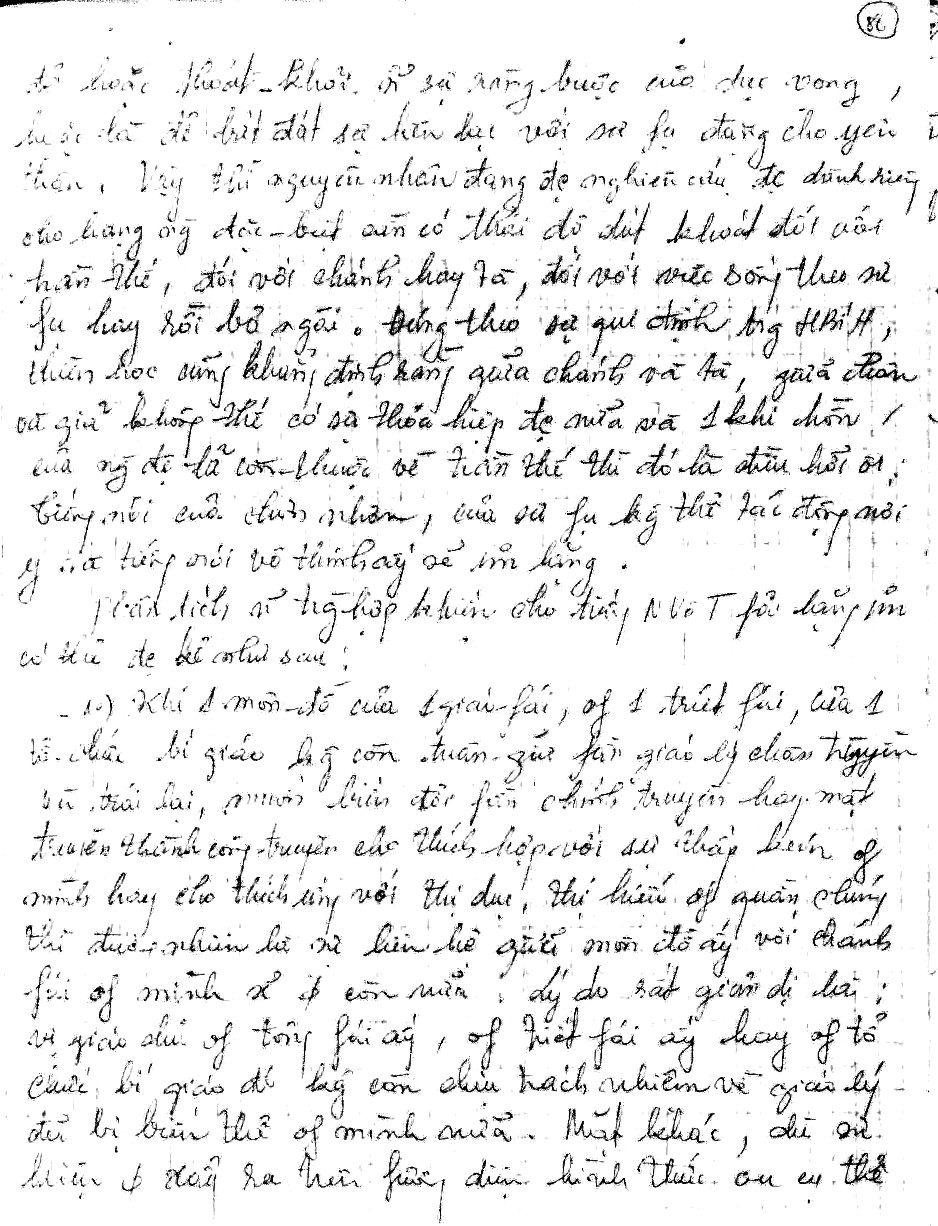 82
để hoặc thoát-khỏi sự ràng buộc của dục vọng,
hoặc là để bắt đát sự liên lạc với sư fụ đặng cho yên
thân. Vậy thì nguyên nhân đang đc nghiên cứu đc dành riêng
cho hạng ng đặc-biệt cần có thái độ dứt khoát đối với
trần thế, đối với chánh hay tà, đối với việc sống theo sư
fụ hay rời bỏ ngài. Đúng theo sự qui định trg HBiH,
thiên học cũng khẳng định rằng giữa chánh và tà, giữa chân
và giả không thể có sự thỏa hiệp đc nữa và 1 khi chơn
của ng đệ tử còn thuộc về trần thế thì đó là điều hỡi ơi;
tiếng nói của chơn nhơn, của sư fụ kg thể tác động nơi
y và tiếng nói vô thinh ấy sẽ im lặng.
Phân tích sự trg-hợp khiến cho tiếng N Vô T fải lặng im
có thể đc kể như sau:
- 1.) Khi 1 môn-đồ của 1 giáo-fái, of 1 triết fái, của 1
tổ chức bí giáo kg còn tuân-giữ fần giáo lý chân truyền
trái lại, muốn biến đổi fần chính truyền hay mật
truyền thành công-truyền cho thích hợp với sự thấp kém of
mình hay cho thích ứng với thị dục, thị hiếu of quần chúng
thì đương nhiên là sự liên hệ giữa môn đồ ấy với chánh
fái of mình sẽ ɸ còn nữa. Lý do rất giản dị là:
vị giáo chủ of tông fái ấy, of triết fái ấy hay of tổ
chức bí giáo đó kg còn chịu trách nhiệm về giáo lý
đã bị biến thể of mình nữa. Mặt khác, dù sự
kiện ɸ xảy ra trên fương diện hình thức cụ thể